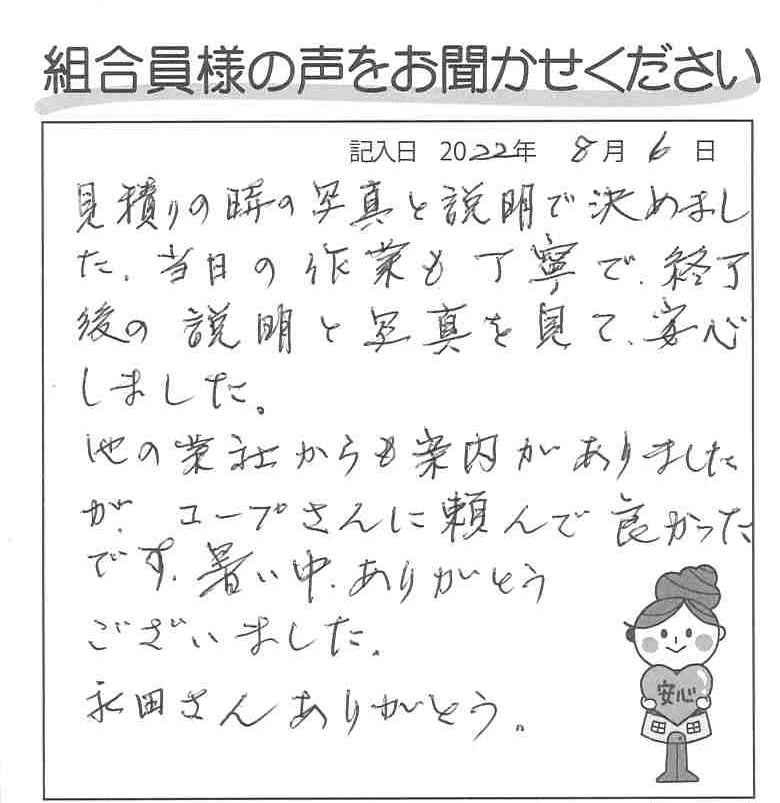 組合員様の声をお聞かせください
記入日 2022年 8月 6日
見積りの時の写真と説明で決めまし
た。当日の作業も丁寧で、終了
後の説明と写真を見て、安心
しました。
他の業社からも案内がありました
が、コープさんに頼んで良かった
です。暑い中、ありがとう
ございました。
永田さんありがとう。
安心